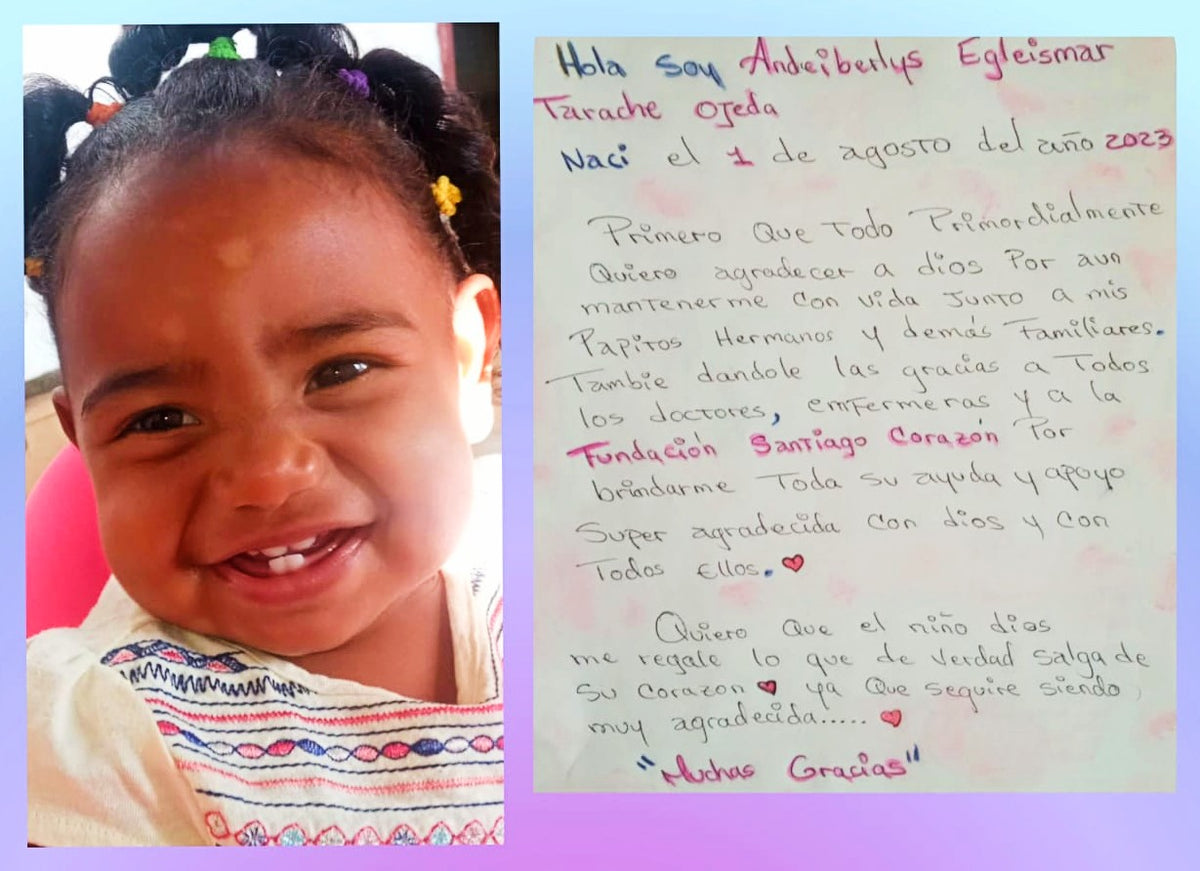 Hola soy Andreiberlys Egleismar
Tarache Ojeda
Naci el 1 de agosto del año 2023
Primero Que Todo Primordialmente
Quiero agradecer a dios Por aun
mantenerme con vida Junto a mis
Papitos Hermanos y demás Familiares.
Tambie dandole las gracias a Todos
los doctores, enfermeras y a la
Fundación Santiago Corazón Por
brindarme Toda su ayuda y apoyo
Super agradecida con dios y con
Todos Ellos. ♥
Quiero Que el niño dios
me regale lo que de verdad salga de
su corazon ♥ ya Que seguire siendo
muy agradecida..... ♥
"Muchas Gracias"